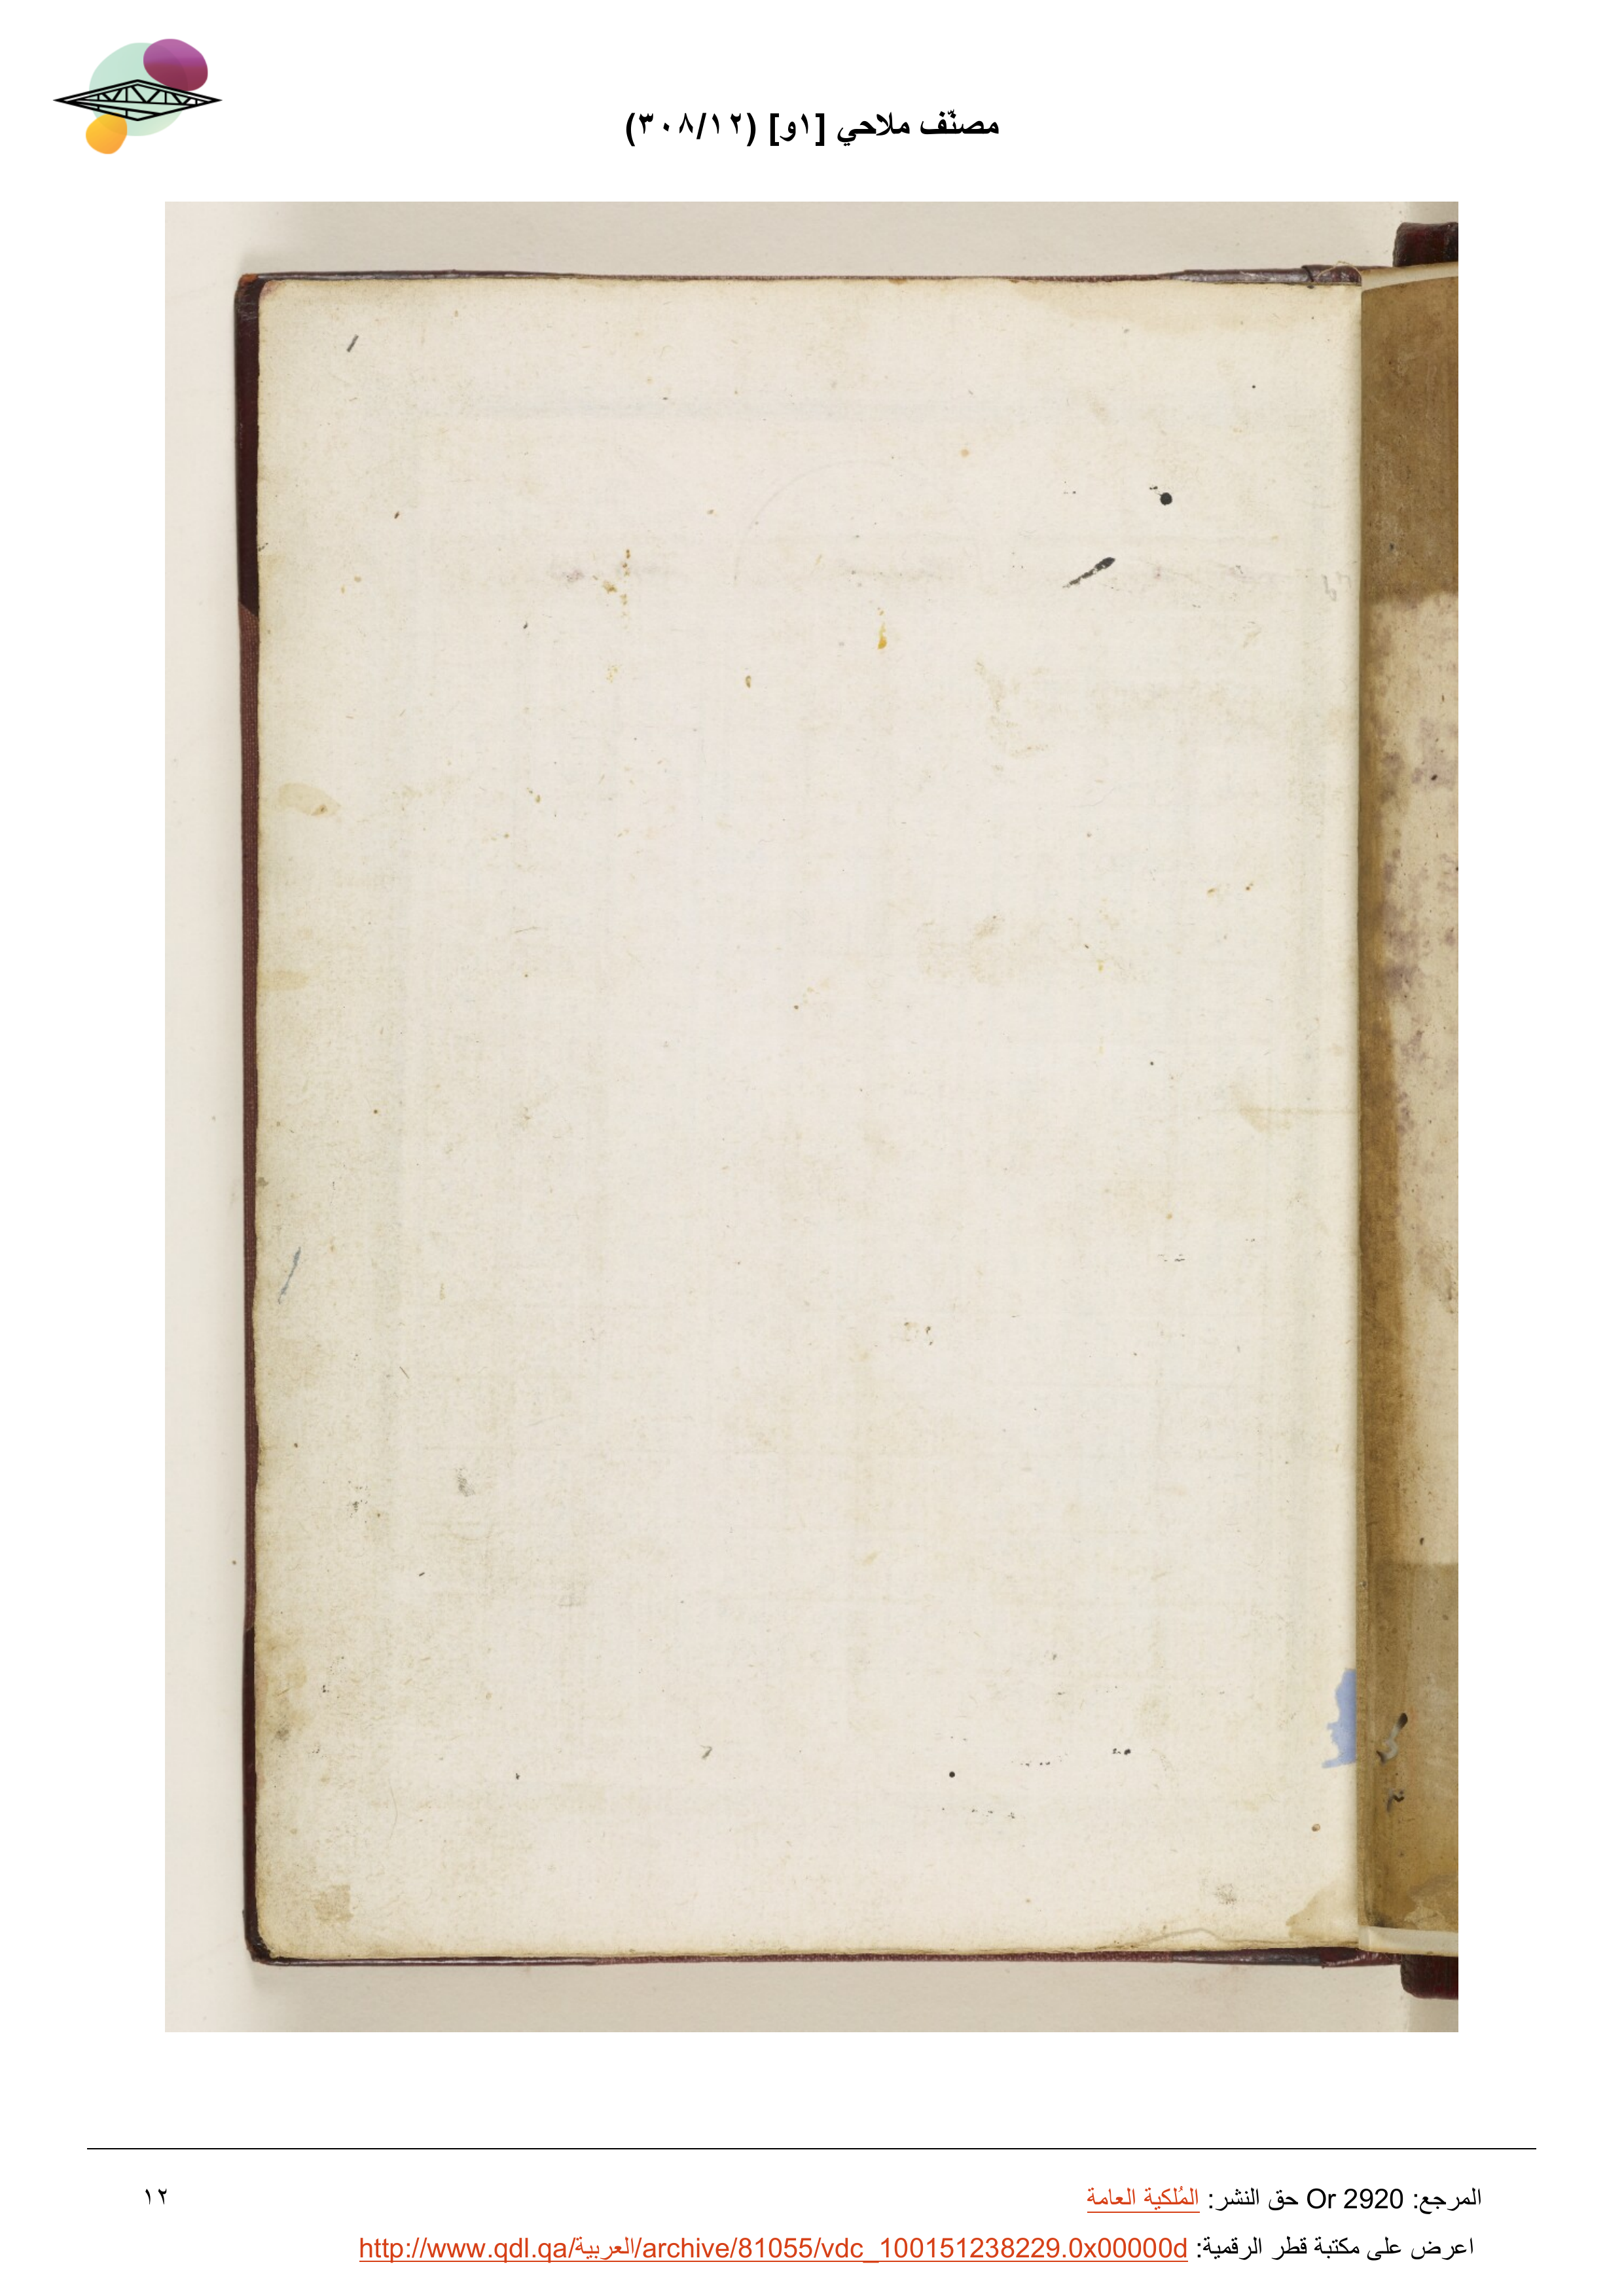 مصنّف ملاحي [١و] (٣٠٨/١٢)
المرجع: Or 2920 حق النشر: المُلكية العامة
١٢
اعرض على مكتبة قطر الرقمية: http://www.qdl.qa/العربية/archive/81055/vdc_100151238229.0x00000d